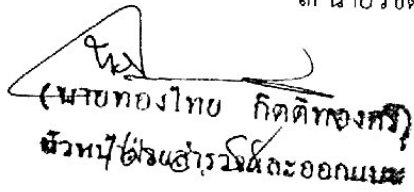 (นายทองไทย กิตติทองศรี)
หัวหน้าฝ่ายสำรวจและออกแบบ